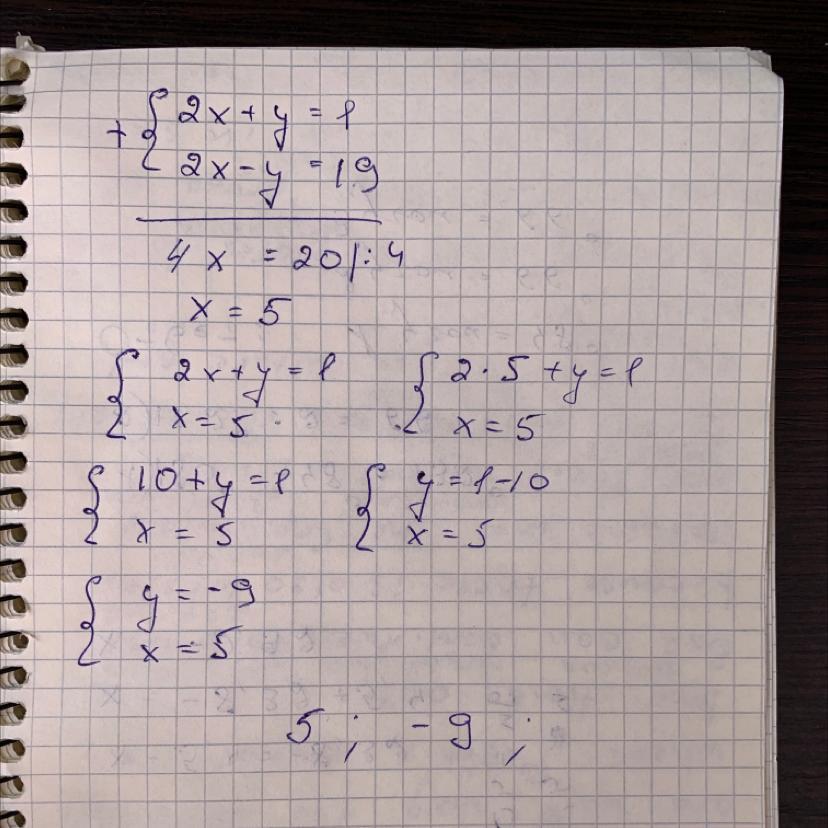 + { 2x + y = 1
2x - y = 19
4x = 20 | : 4
x = 5
{ 2x + y = 1 { 2 · 5 + y = 1
x = 5 x = 5
{ 10 + y = 1 { y = 1 - 10
x = 5 x = 5
{ y = -9
x = 5
5 ; -9 ;